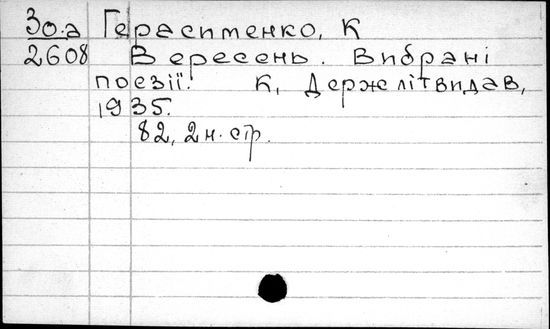 Зо.а Герасименко, К
2608 Вересень. Вибрані
поезії. К, Держлітвидав,
1935.
82, 2 н. стр.